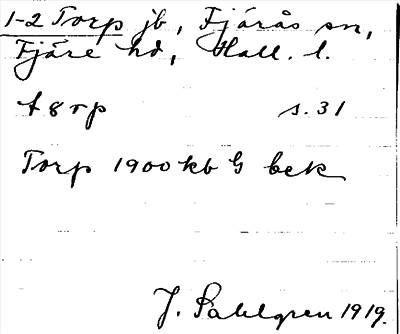 1-2 Torp jb, Fjärås sn,
Fjäre hd, Hall. l.
t8rp s. 31
Torp 1900 kb G bek
J. Sahlgren 1919.